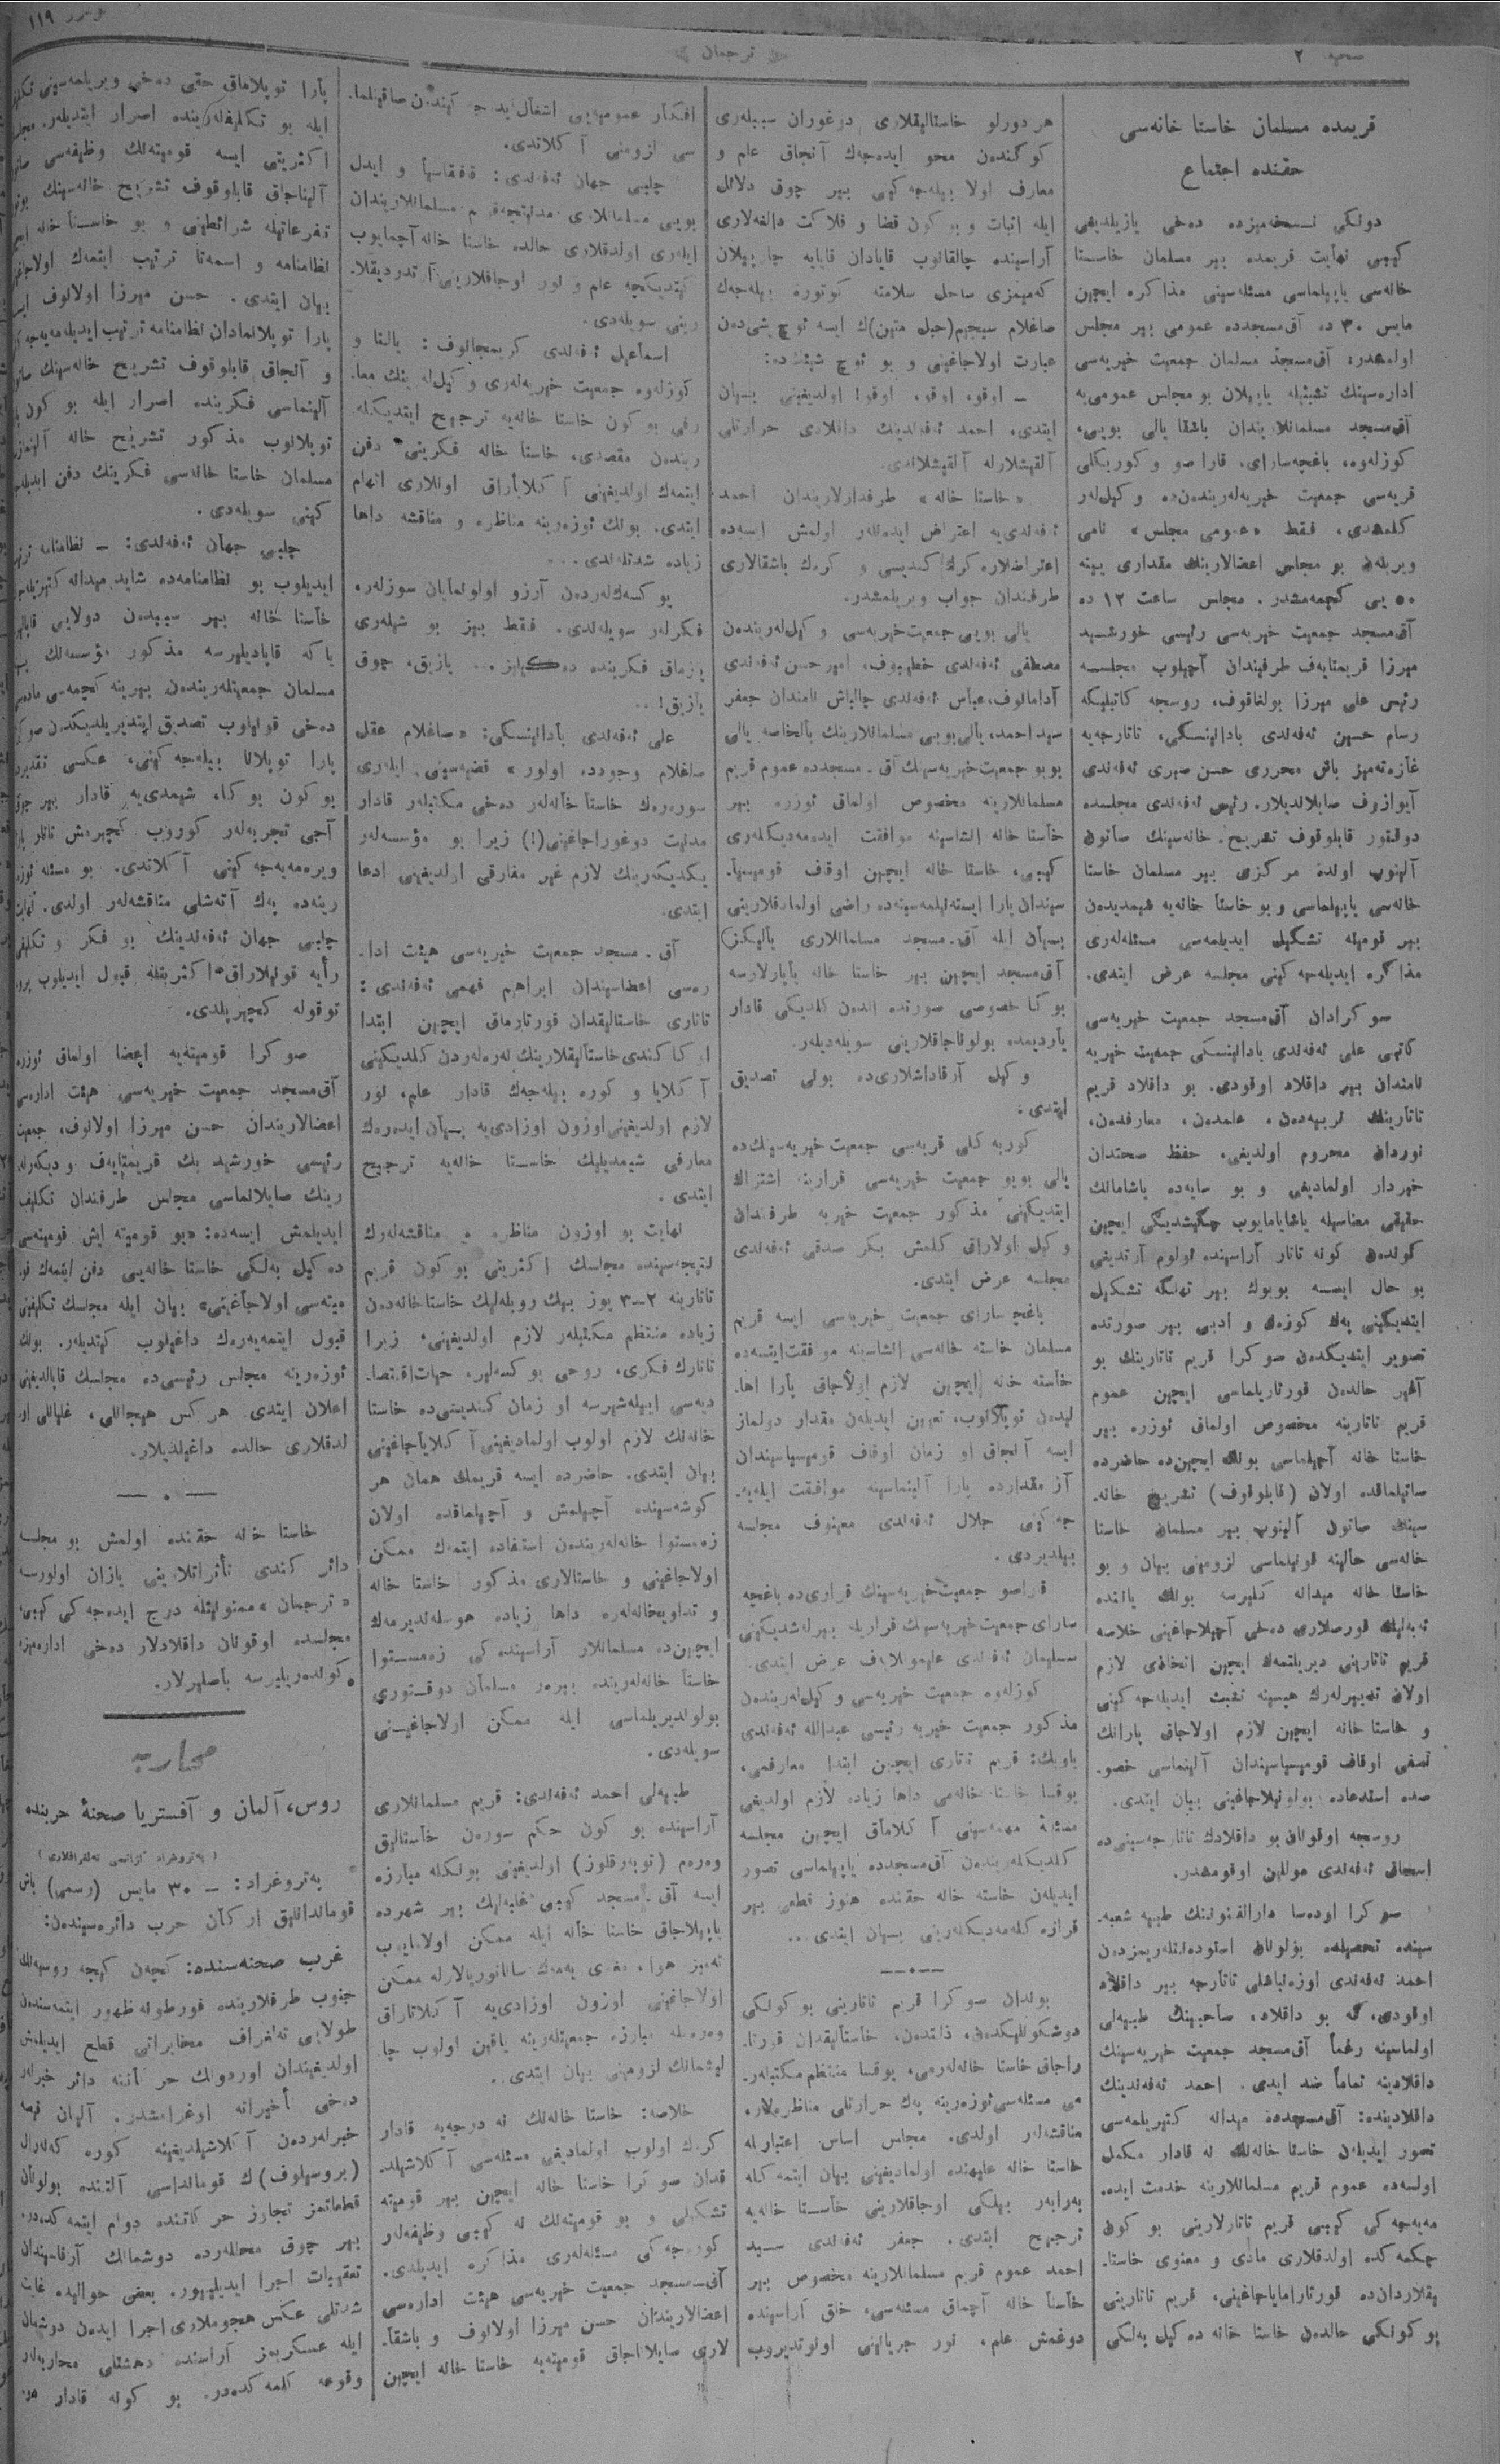 صحیفه ٢
ترجمان
نومرو ١١٩
قریمده مسلمان خاستا خانه‌سی
حقنده اجتماع
دونکی نسخه‌میزده دخی یازیلدیغی
کیبی نهایت قریمده بیر مسلمان خاستا
خانه‌سی یاپیلماسی مسئله‌سینی مذاکره ایچین
مایس ٣٠ ده آق‌مسجدده عمومی بیر مجلس
اولمشدر: آق‌مسجد مسلمان جمعیت خیریه‌سی
اداره‌سینك تشبثیله یاپیلان بو مجلس عمومی‌یه
آق‌مسجد مسلمانلاریندان باشقا یالی بویی،
کوزله‌وه، باغچه‌سارای، قاراصو و کوربکلی
قریه‌سی جمعیت خیریه‌لریندن‌ده وکیل‌لر
کلمشدی، فقط «عمومی مجلس» نامی
ویریلن بو مجلس اعضالارینك مقداری یینه
٥٠ یی کچمه‌مشدر. مجلس ساعت ١٢ ده
آق‌مسجد جمعیت خیریه‌سی رئیسی خورشید
میرزا قریمتایف طرفیندان آچیلوب مجلسه
رئیس علی میرزا بولغاقوف، روسجه کاتبلیکه
رسام حسین ئه‌فه‌ندی بادانینسکی، تاتارجه‌یه
غازه‌ته‌میز باش محرری حسن صبری ئه‌فه‌ندی
آیوازوف صایلاندیلار. رئیس ئه‌فه‌ندی مجلسده
دوقتور قابلوقوف تشریح خانه‌سینك صاتون
آلینوب اولده مرکزی بیر مسلمان خاستا
خانه‌سی یاپیلماسی و بو خاستا خانه‌یه شیمدیدن
بیر قومیته تشکیل ایدیلمه‌سی مسئله‌لری
مذاکره ایدیله‌جه‌کینی مجلسه عرض ایتدی.
صوکرادان آق‌مسجد جمعیت خیریه‌سی
کاتبی علی ئه‌فه‌ندی بادانینسکی جمعیت خیریه
نامندان بیر داقلاد اوقودی. بو داقلاد قریم
تاتارینك تربیه‌دن، علمدن، معارفدن،
نوردان محروم اولدیغی، حفظ صحتدان
خبردار اولمادیغی و بو سایه‌ده یاشامانك
حقیقی معناسیله یاشایامایوب چکیشدیکی ایچین
کوندن کونه تاتار آراسینده ئولوم آرتدیغی
بو حال ایسه بویوك بیر تهلکه تشکیل
ایتدیکینی پك کوزل و ادبی بیر صورتده
تصویر ایتدیکدن صوکرا قریم تاتارینك بو
آغیر حالدن قورتاریلماسی ایچین عموم
قریم تاتارینه مخصوص اولماق ئوزره بیر
خاستا خانه آچیلماسی بونك ایچین‌ده حاضرده
صاتیلماقده اولان (قابلوقوف) تشریح خانه‌-
سینك صاتون آلینوب بیر مسلمان خاستا
خانه‌سی حالینه قونیلماسی لزومینی بیان و بو
خاستا خانه میدانه کلیرسه بونك یاننده
ئه‌به‌لیك قورصلاری دخی آچیلاجاغینی خلاصه
قریم تاتارینی دیریلتمك ایچین اتخاذی لازم
اولان تدبیرلرك هپسینه تشبث ایدیله‌جه‌کینی
و خاستا خانه ایچین لازم اولاجاق پارانك
نصفی اوقاف قومیسیاسیندان آلینماسی خصو-
صده استدعاده بولونیلاجاغینی بیان ایتدی.
روسجه اوقونان بو داقلادك تاتارجه‌سینی‌ده
اسحاق ئه‌فه‌ندی موللین اوقومشدر.
صوکرا اوده‌سا دارالفنونك طبیه شعبه‌-
سینده تحصیلده بولونان استوده‌نتلریمزدن
احمد ئه‌فه‌ندی اوزه‌نباشلی تاتارجه بیر داقلاد
اوقودی، که بو داقلاد، صاحبینك طبیه‌لی
اولماسینه رغماً آق‌مسجد جمعیت خیریه‌سینك
داقلادینه تماماً ضد ایدی. احمد ئه‌فه‌ندینك
داقلادینده: آق‌مسجدده میدانه کتیریلمه‌سی
تصور ایدیلن خاستا خانه‌نك نه قادار مکمل
اولسه‌ده عموم قریم مسلمانلارینه خدمت ایده‌-
میه‌جه‌کی کیبی قریم تاتارلارینی بو کون
چکمه‌کده اولدقلاری مادی و معنوی خاستا-
لیقلاردان‌ده قورتارامایاجاغینی، قریم تاتارینی
بو کونکی حالدن خاستا خانه ده‌کیل به‌لکی
هر دورلو خاستالیقلاری دوغوران سببلری
کوکندن محو ایده‌جه‌ك آنجاق علم و
معارف اولا بیله‌جه‌کینی بیر چوق دلائل
ایله اثبات و بو کون قضا و فلاکت دالغه‌لاری
آراسینده چالقانوب قایادان قایایه چارپیلان
که‌میمزی ساحل سلامته کوتوره بیله‌جه‌ك
صاغلام سیجیم (حبل متین)ك ایسه ئوچ شی‌دن
عبارت اولاجاغینی و بو ئوچ شیئك‌ده:
ــ اوقو، اوقو، اوقو! اولدیغینی بیان
ایتدی، احمد ئه‌فه‌ندینك داقلادی حرارتلی
آلقیشلارله آلقیشلاندی.
«خاستا خانه» طرفدارلاریندان احمد
ئه‌فه‌ندی‌یه اعتراض ایده‌نلر اولمش ایسه‌ده
اعتراضلاره کرك کندیسی و کرك باشقالاری
طرفندان جواب ویریلمشدر.
یالی بویی جمعیت خیریه‌سی وکیل‌لریندن
مصطفی ئه‌فه‌ندی خطیبوف، امیر حسن ئه‌فه‌ندی
آدامانوف، عباس ئه‌فه‌ندی چالباش نامندان جعفر
سید احمد، یالی‌بویی مسلمانلارینك بالخاصه یالی
بویو جمعیت خیریه‌سینك آق‌ـ مسجدده عموم قریم
مسلمانلارینه مخصوص اولماق ئوزره بیر
خاستا خانه انشاسینه موافقت ایده‌مه‌دیکلری
کیبی، خاستا خانه ایچین اوقاف قومیسیا-
سیندان پارا ایسته‌نیلمه‌سینه‌ده راضی اولمادقلارینی
بیان ایله آق‌ـ مسجد مسلمانلاری یالیکز
آق‌مسجد ایچین بیر خاستا خانه یاپارلارسه
بوکا خصوصی صورتده الدن کلدیکی قادار
یاردیمده بولوناجاقلارینی سویله‌دیلر.
وکیل آرقاداشلاری‌ده بونی تصدیق
ایتدی.
کوربه‌کلی قریه‌سی جمعیت خیریه‌سینك‌ده
یالی بویو جمعیت خیریه‌سی قرارینه اشتراك
ایتدیکینی مذکور جمعیت خیریه طرفندان
وکیل اولاراق کلمش بکر صدقی ئه‌فه‌ندی
مجلسه عرض ایتدی.
باغچه‌سارای جمعیت خیریه‌سی ایسه قریم
مسلمان خاسته خانه‌سی انشاسینه موافقت ایتسه‌ده
خاسته خانه ایچین لازم اولاجاق پارا اها-
لیدن توپلانوب، تعیین ایدیلن مقدار دولماز
ایسه آنجاق او زمان اوقاف قومیسیاسیندان
آز مقدارده پارا آلینماسینه موافقت ایلیه-
جه‌کینی جلال ئه‌فه‌ندی معینوف مجلسه
بیلدیردی.
قراصو جمعیت خیریه‌سینك قراری‌ده باغچه
سارای جمعیت خیریه‌سینك قراریله بیرلشدیکینی
سلیمان ئه‌فه‌ندی علیموللایف عرض ایتدی.
کوزله‌وه جمعیت خیریه‌سی وکیل‌لریندن
مذکور جمعیت خیریه رئیسی عبدالله ئه‌فه‌ندی
باوبك: قریم تاتاری ایچین ابتدا معارفمی،
یوقسا خاستا خانه‌می داها زیاده لازم اولدیغی
مسئلهٔ مهمه‌سینی آکلاماق ایچین مجلسه
کلدیکلریندن آق‌مسجدده یاپیلماسی تصور
ایدیلن خاسته خانه حقنده هنوز قطعی بیر
قراره کلمه‌دیکلرینی بیان ایتدی...
بوندان صوکرا قریم تاتارینی بو کونکی
دوشکونلیکدن، ذلتدن، خاستالیقدان قورتا-
راجاق خاستا خانه‌لرمی، یوقسا منتظم مکتبلر-
می مسئله‌سی ئوزه‌رینه پك حرارتلی مناظره‌لر،
مناقشه‌لر اولدی. مجلس اساس اعتباریله
خاستا خانه علیهنده اولمادیغینی بیان ایتمه‌کله
برابر بیلکی اوجاقلارینی خاستا خانه‌یه
ترجیح ایتدی. جعفر ئه‌فه‌ندی سید
احمد عموم قریم مسلمانلارینه مخصوص بیر
خاستا خانه آچماق مسئله‌سی، خلق آراسینده
دوغمش علم، نور جریانینی اونوتدیروب
افکار عمومیه‌یی اشغال ایده‌جه‌کیندن صاقینلما-
سی لزومنی آکلاتدی.
چلبی جهان ئه‌فه‌ندی: قافقاسیا و ایدل
بویی مسلمانلاری مدنیتجه قریم مسلمانلاریندان
ایلری اولدقلاری حالده خاستا خانه آچمایوب
کیتدیکچه علم و نور اوجاقلارینی آرتدیردیقلا-
رینی سویله‌دی.
اسماعیل ئه‌فه‌ندی کریمجانوف: یالتا و
کوزله‌وه جمعیت خیریه‌لری وکیل‌لرینك معا-
رفی بو کون خاستا خانه‌یه ترجیح ایتدیکله-
ریندن مقصدی، خاستا خانه فکرینی دفن
ایتمك اولدیغینی آکلاتاراق اونلاری اتهام
ایتدی. بونك ئوزه‌رینه مناظره و مناقشه داها
زیاده شدتلندی...
یوکسك‌لردن آرزو اولونمایان سوزلر،
فکرلر سویلندی. فقط بیز بو شیلری
یازماق فکرینده ده‌کیلیز... یازیق، چوق
یازیق!..
علی ئه‌فه‌ندی بادانینسکی: «صاغلام عقل
صاغلام وجودده اولور» قضیه‌سینی ایلری
سوره‌رك خاستا خانه‌لر دخی مکتبلر قادار
مدنیت دوغوراجاغینی (!) زیرا بو مؤسسه‌لر
یکدیکرینك لازم غیر مفارقی اولدیغینی ادعا
ایتدی.
آق ـ مسجد جمعیت خیریه‌سی هیئت ادا-
ره‌سی اعضاسیندان ابراهیم فهمی ئه‌فه‌ندی:
تاتاری خاستالیقدان قورتارماق ایچین ابتدا
اوکا کندی خاستالیقلارینك نره‌لردن کلدیکینی
آکلایا و کوره بیله‌جه‌ك قادار علم، نور
لازم اولدیغینی اوزون اوزادی‌یه بیان ایده‌رك
معارفی شیمدیلیك خاستا خانه‌یه ترجیح
ایتدی.
نهایت بو اوزون مناظره و مناقشه‌لرك
نتیجه‌سینده مجلسك اکثریتی بو کون قریم
تاتارینه ٢ـ٣ یوز بیك روبله‌لیك خاستا خانه‌دن
زیاده منتظم مکتبلر لازم اولدیغینی، زیرا
تاتارك فکری، روحی یوکسلیر، حیات اقتصا-
دیه‌سی اییله‌شیرسه او زمان کندیسی‌ده خاستا
خانه‌نك لازم اولوب اولمادیغینی آکلایاجاغینی
بیان ایتدی. حاضرده ایسه قریمك همان هر
کوشه‌سینده آچیلمش و آچیلماقده اولان
زه‌مستوا خانه‌لریندن استفاده ایتمك ممکن
اولاجاغینی و خاستالاری مذکور خاستا خانه
و تداویخانه‌لره داها زیاده هوسلندیرمك
ایچین‌ده مسلمانلار آراسینده‌کی زه‌مستوا
خاستا خانه‌لرینده بیرر مسلمان دوقتوری
بولوندیریلماسی ایله ممکن اولاجاغینی
سویله‌دی.
طبیه‌لی احمد ئه‌فه‌ندی: قریم مسلمانلاری
آراسینده بو کون حکم سورن خاستالیق
وه‌ره‌م (توبه‌رقلوز) اولدیغینی بونکله مبارزه
ایسه آق ـ مسجد کیبی غلبه‌لیك بیر شهرده
یاپیلاجاق خاستا خانه ایله ممکن اولامایوب
تمیز هوا، مغدی یه‌مك سانانوریالارله ممکن
اولاجاغینی اوزون اوزادی‌یه آکلاتاراق
وه‌ره‌مله مبارزه جمعیتلرینه یاقین اولوب چا-
لیشمانك لزومینی بیان ایتدی..
خلاصه: خاستا خانه‌نك نه درجه‌یه قادار
کرك اولوب اولمادیغی مسئله‌سی آکلاشیلد-
قدان صوکرا خاستا خانه ایچین بیر قومیته
تشکیلی و بو قومیته‌نك نه کیبی وظیفه‌لر
کوره‌جه‌کی مسئله‌لری مذاکره ایدیلدی.
آق ـ مسجد جمعیت خیریه‌سی هیئت اداره‌سی
اعضالاریندان حسن میرزا اولانوف و باشقا-
لاری صایلااجاق قومیته‌یه خاستا خانه ایچین
پارا توپلاماق حقی دخی ویریلمه‌سینی تکلیف
ایله بو تکلیفلرینده اصرار ایتدیلر. مجلس
اکثریتی ایسه قومیته‌نك وظیفه‌سی صاتون
آلیناجاق قابلوقوف تشریح خانه‌سینك بوتون
تفرعاتیله شرائطینی و بو خاستا خانه ایچین
نظامنامه و اسمه‌تا ترتیب ایتمك اولاجاغینی
بیان ایتدی. حسن میرزا اولانوف ایسه
پارا توپلانمادان نظامنامه ترتیب ایدیله‌میه‌جه‌کی
و آنجاق قابلوقوف تشریح خانه‌سینك صاتون
آلینماسی فکرینده اصرار ایله بو کون پارا
توپلانوب مذکور تشریح خانه آلینمازسه
مسلمان خاستا خانه‌سی فکرینك دفن ایدیله‌جه-
کینی سویله‌دی.
چلبی جهان ئه‌فه‌ندی: ــ نظامنامه ترتیب
ایدیلوب بو نظامنامه‌ده شاید میدانه کتیریله‌جك
خاستا خانه بیر سببدن دولایی قاپانیر
یاکه قاپادیلیرسه مذکور مؤسسه‌نك بیر
مسلمان جمعیتلریندن بیرینه کچمه‌سی ماده‌سی
دخی قونیلوب تصدیق ایتدیریلدیکدن صوکرا
پارا توپلانا بیله‌جه‌کینی، عکسی تقدیرده
بو کون بوکا، شیمدی‌یه قادار بیر چوق
آجی تجربه‌لر کوروب کچیرمش تاتار پارا
ویره‌میه‌جه‌کینی آکلاتدی. بو مسئله ئوزه-
رینه‌ده پك آتشلی مناقشه‌لر اولدی. نهایت
چلبی جهان ئه‌فه‌ندینك بو فکر و تکلیفی
رأیه قونیلاراق اکثریتله قبول ایدیلوب پرو-
توقوله کچیریلدی.
صوکرا قومیته‌یه اعضا اولماق ئوزره
آق‌مسجد جمعیت خیریه‌سی هیئت اداره‌سی
اعضالاریندان حسن میرزا اولانوف، جمعیت
رئیسی خورشید بك قریمتایف و دیکرله-
رینك صایلانماسی مجلس طرفندان تکلیف
ایدیلمش ایسه‌ده: «بو قومیته ایش قومیته‌سی
ده‌کیل به‌لکی خاستا خانه‌یی دفن ایتمك قو-
میته‌سی اولاجاغینی» بیان ایله مجلسك تکلیفینی
قبول ایتمه‌یه‌رك داغیلوب کیتدیلر. بونك
ئوزه‌رینه مجلس رئیسی‌ده مجلسك قاپاندیغینی
اعلان ایتدی. هر کس هیجانلی، غلیانلی او-
لدقلاری حالده داغیلدیلار.
خاستا خانه حقنده اولمش بو مجلسه
دائر کندی تأثراتلارینی یازان اولورسه
«ترجمان» ممنونیتله درج ایده‌جه‌کی کیبی،
مجلسده اوقونان داقلادلار دخی اداره‌میزه
کوندریلیرسه باصلیرلار.
محاربه
روس، آلمان و آفستریا صحنهٔ حربنده
(پتروغراد آژانسی تلغرافلاری)
پتروغراد: ــ ٣٠ مایس (رسمی) باش
قوماندانلیق ارکان حرب دائره‌سیندن:
غرب صحنه‌سنده: کچن کیجه روسیه‌نك
جنوب طرفلارینده فورطونه ظهور ایتمه‌سندن
طولایی تلغراف مخابراتی قطع ایدیلمش
اولدیغیندان اوردونك حرکاتنه دائر خبرلر
دخی تأخیرانه اوغرامشدر. آلینان قیصه
خبرلردن آکلاشیلدیغینه کوره که‌نه‌رال
(بروسیلوف)ك قومانداسی آلتنده بولونان
قطعاتمز تجاوز حرکاتنده دوام ایتمه‌کده‌در.
بیر چوق محللرده دوشمانك آرقاسیندان
تعقیبات اجرا ایدیلییور. بعض حوالیده غایت
شدتلی عکس هجوملاری اجرا ایدن دوشمان
ایله عسکریمز آراسنده دهشتلی محاربه‌لر
وقوعه کلمه‌کده‌در. بو کونه قادار